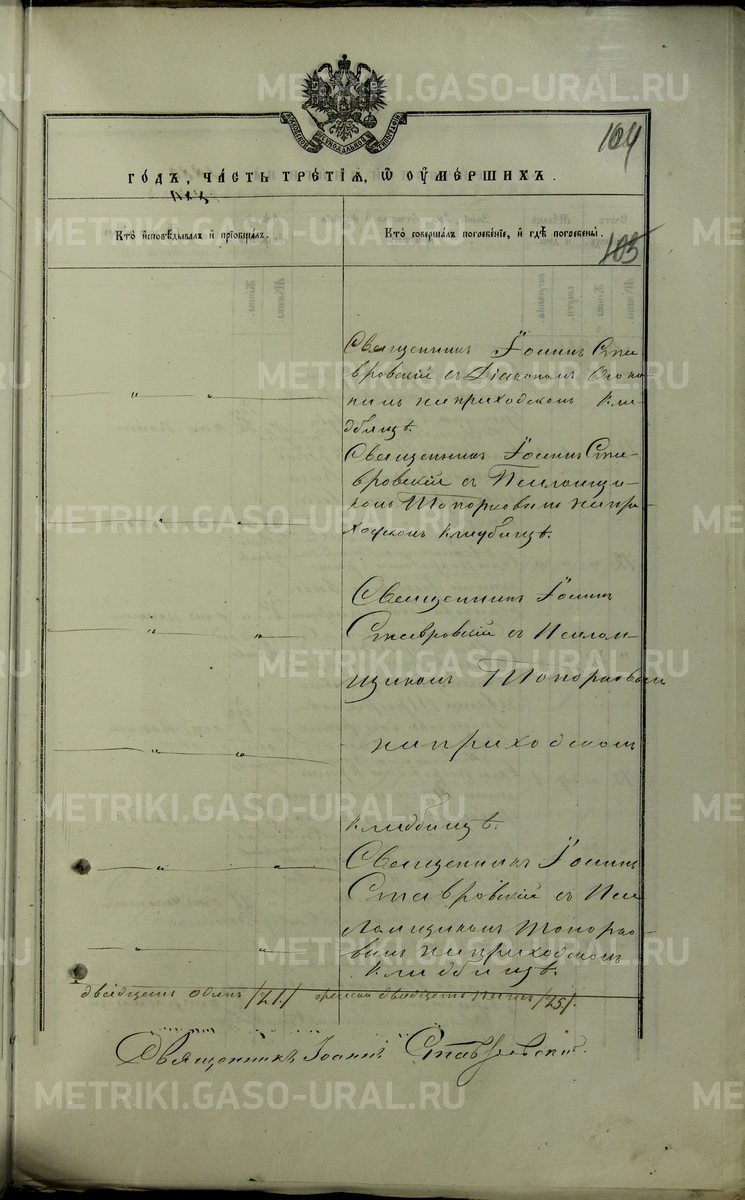 METRIKI.GASO-URAL.RU
104
ГОДЪ, ЧАСТЬ ТРЕТІЯ, Ѿ ОУМЕРШИХЪ.
Кто исповѣдывалъ и пріобщалъ.
Кто совершалъ погребеніе, и гдѣ погребены.
103
Священникъ Іоаннъ Ста-
вровскій съ Діакономъ
на приходскомъ Кла-
дбищѣ.
Священникъ Іоаннъ Ста-
вровскій съ Псаломщи-
комъ Топорковымъ на при-
ходскомъ кладбищѣ.
Священникъ Іоаннъ
Ставровскій съ Псалом-
щикомъ Топорковымъ
на приходскомъ
кладбищѣ.
Священникъ Іоаннъ
Ставровскій съ Пса
ломщикомъ Топорко-
вымъ на приходскомъ
кладбищѣ.
двадцать одинъ /21./ женска двадцать пять /25/.
Священникъ Іоаннъ Ставровскій.